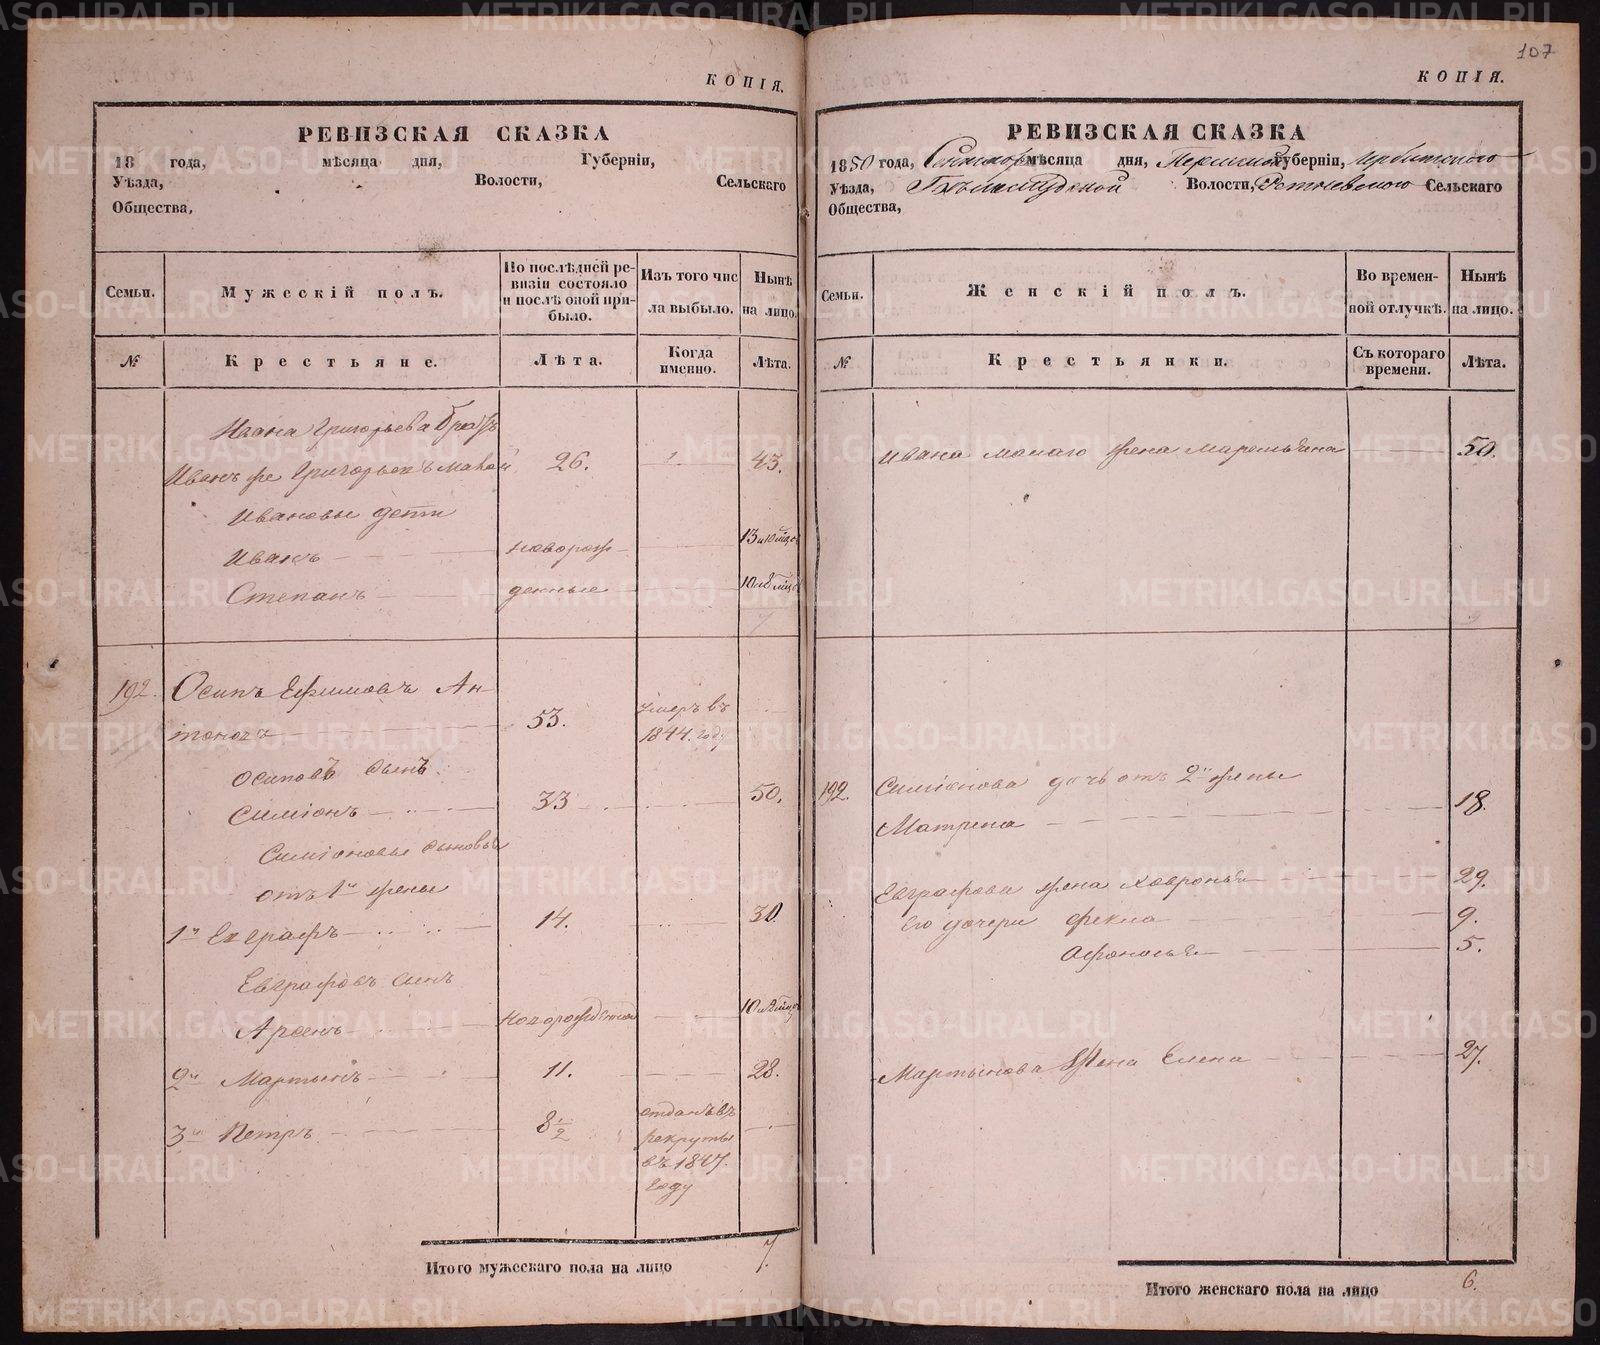 107
КОПІЯ.
РЕВИЗСКАЯ СКАЗКА
18 года, мѣсяца дня, Губерніи,
Уѣзда, Волости, Сельскаго
Общества,
Семьи.
Мужескій полъ.
По послѣдней ре-
визіи состояло
и послѣ оной при-
было.
Изъ того чис
ла выбыло.
Нынѣ
на лицо.
№
Крестьяне.
Лѣта.
Когда
именно.
Лѣта.
Ивана Григорьева братъ
Иванъ же Григорьевъ малой 26. 43.
Ивановы дети
Иванъ новорож 13 и 10 мцов
Степанъ денные 10 и 8 мцов
192. Осипъ Ефимовъ Ан-
тоновъ 53. умеръ въ
1844. году
Осиповъ сынъ
Симіонъ 33 50.
Симіоновы сыновья
отъ 1й жены
1й Евграфъ 14. 30.
Евграфовъ сынъ
Арсенъ новорожденной
2й Мартынъ 11. 28.
3й Петръ 8½ отданъ въ
рекруты
въ 1847.
году
Итого мужескаго пола на лицо 7.
КОПІЯ.
РЕВИЗСКАЯ СКАЗКА
1850 года, мѣсяца дня, Пермской Губерніи, Ирбитского
Уѣзда, Волости, Сельскаго
Общества,
Семьи.
Женскій полъ.
Во времен-
ной отлучкѣ.
Нынѣ
на лицо.
№
Крестьянки.
Съ котораго
времени.
Лѣта.
Ивана малаго жена Маремьяна 50.
192. Симіонова дочь отъ 2й жены
Матрена 18.
Евграфова жена Хавронья 29.
Его дочери Фекла 9.
Афонасья 5.
Мартынова жена Елена 27.
Итого женскаго пола на лицо 6.
METRIKI.GASO-URAL.RU